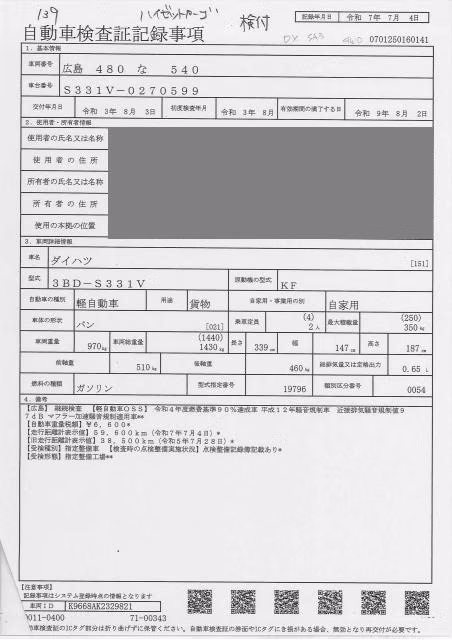 139 ハイゼットカーゴ 検付
記録年月日 令和 7年 7月 4日
自動車検査証記録事項
DX SA3 4WD 0701250160141
1．基本情報
車両番号 広島 480 な 540
車台番号 S331V-0270599
交付年月日 令和 3年 8月 3日 初度検査年月 令和 3年 8月 有効期間の満了する日 令和 9年 8月 2日
2．使用者・所有者情報
使用者の氏名又は名称
使用者の住所
所有者の氏名又は名称
所有者の住所
使用の本拠の位置
3．車両詳細情報
車名 ダイハツ [151]
型式 3BD-S331V 原動機の型式 KF
自動車の種別 軽自動車 用途 貨物 自家用・事業用の別 自家用
車体の形状 バン [021] 乗車定員 (4) 2人 最大積載量 (250) 350kg
車両重量 970kg 車両総重量 (1440) 1430kg 長さ 339cm 幅 147cm 高さ 187cm
前軸重 510kg 後軸重 460kg 総排気量又は定格出力 0.65 L
燃料の種類 ガソリン 型式指定番号 19796 類別区分番号 0054
4．備考
【広島】 継続検査 【軽自動車OSS】 令和4年度燃費基準90％達成車 平成12年騒音規制車 近接排気騒音規制値9
7dB マフラー加速騒音規制適用車**
【自動車重量税額】￥6,600*
【走行距離計表示値】59,600km（令和7年7月4日）*
【旧走行距離計表示値】38,500km（令和5年7月28日）*
【受検種別】指定整備車 【検査時の点検整備実施状況】点検整備記録簿記載あり*
【受検形態】指定整備工場**
【注意事項】
記録事項はシステム登録時点の情報となります
車両ID K9668AK2329821
0011-0400 71-00343
動車検査証のICタグ部分は折り曲げずに保管ください。自動車検査証の券面やICタグにき損がある場合、無効となり再交付が必要です。